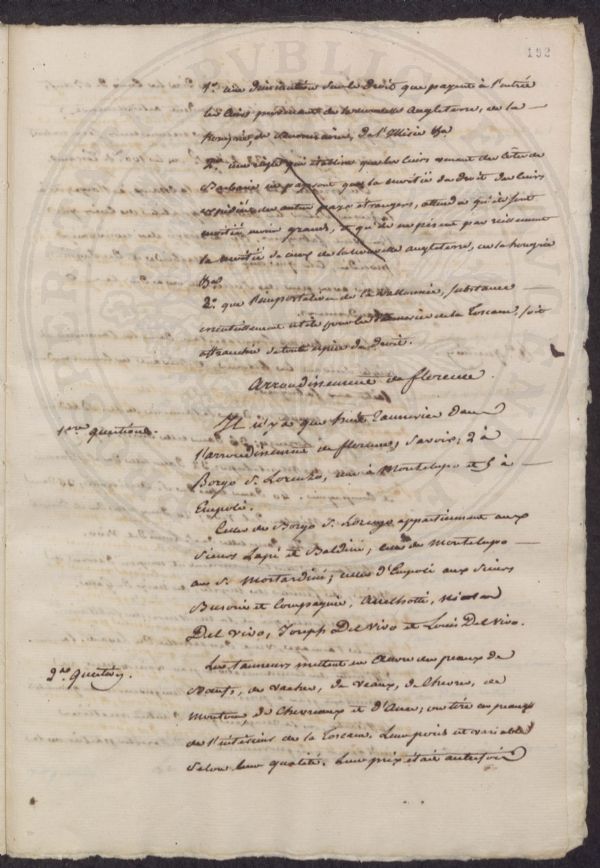 192
1.° une diminution sur le Droit que payent à l'entrée
les Cuirs provenant de la nouvelle Angleterre, de la
hongrie, de l'Illirie &a
2.° une règle qui établisse que les Cuirs venant des Côtes de
Barbarie ne payeront que la moitié du Droit des Cuirs
des autres pays étrangers, attendu qu'ils sont
moitié moins grands, et qu'ils ne pèsent pas réellement
la moitié de ceux de la nouvelle angleterre, de la hongrie
&a
2.° que l'importation de la Vallonnée, substance
essentiellement utile pour les Tanneries de la Toscane, soit
affranchie de toute espèce de droit.
Arrondissement de florence.
1ère Question.
Il n'y a que huit Tanneries dans
l'arrondissement de florence, Savoir; 2 à
Borgo S. Lorenzo, une à Montelupo et 5 à
Empoli.
Celles de Borgo S. Lorenzo appartiennent aux
Sieurs Lapi et Baldini; celle de Montelupo
au S. Mostardini; celles d'Empoli aux Sieurs
Busoni et Compagnie,
Del Vivo, Joseph Del Vivo et Louis Del Vivo.
2de Question.
Les Tanneurs mettent en Œuvre des peaux de
Bœufs, de vaches, de veaux, de Chèvres, de
Moutons, de Chevreaux et d'Anes; on tire ces peaux
de l'intérieur de la Toscane. Leur poids est variable
selon leur qualité. Leur prix était autrefois